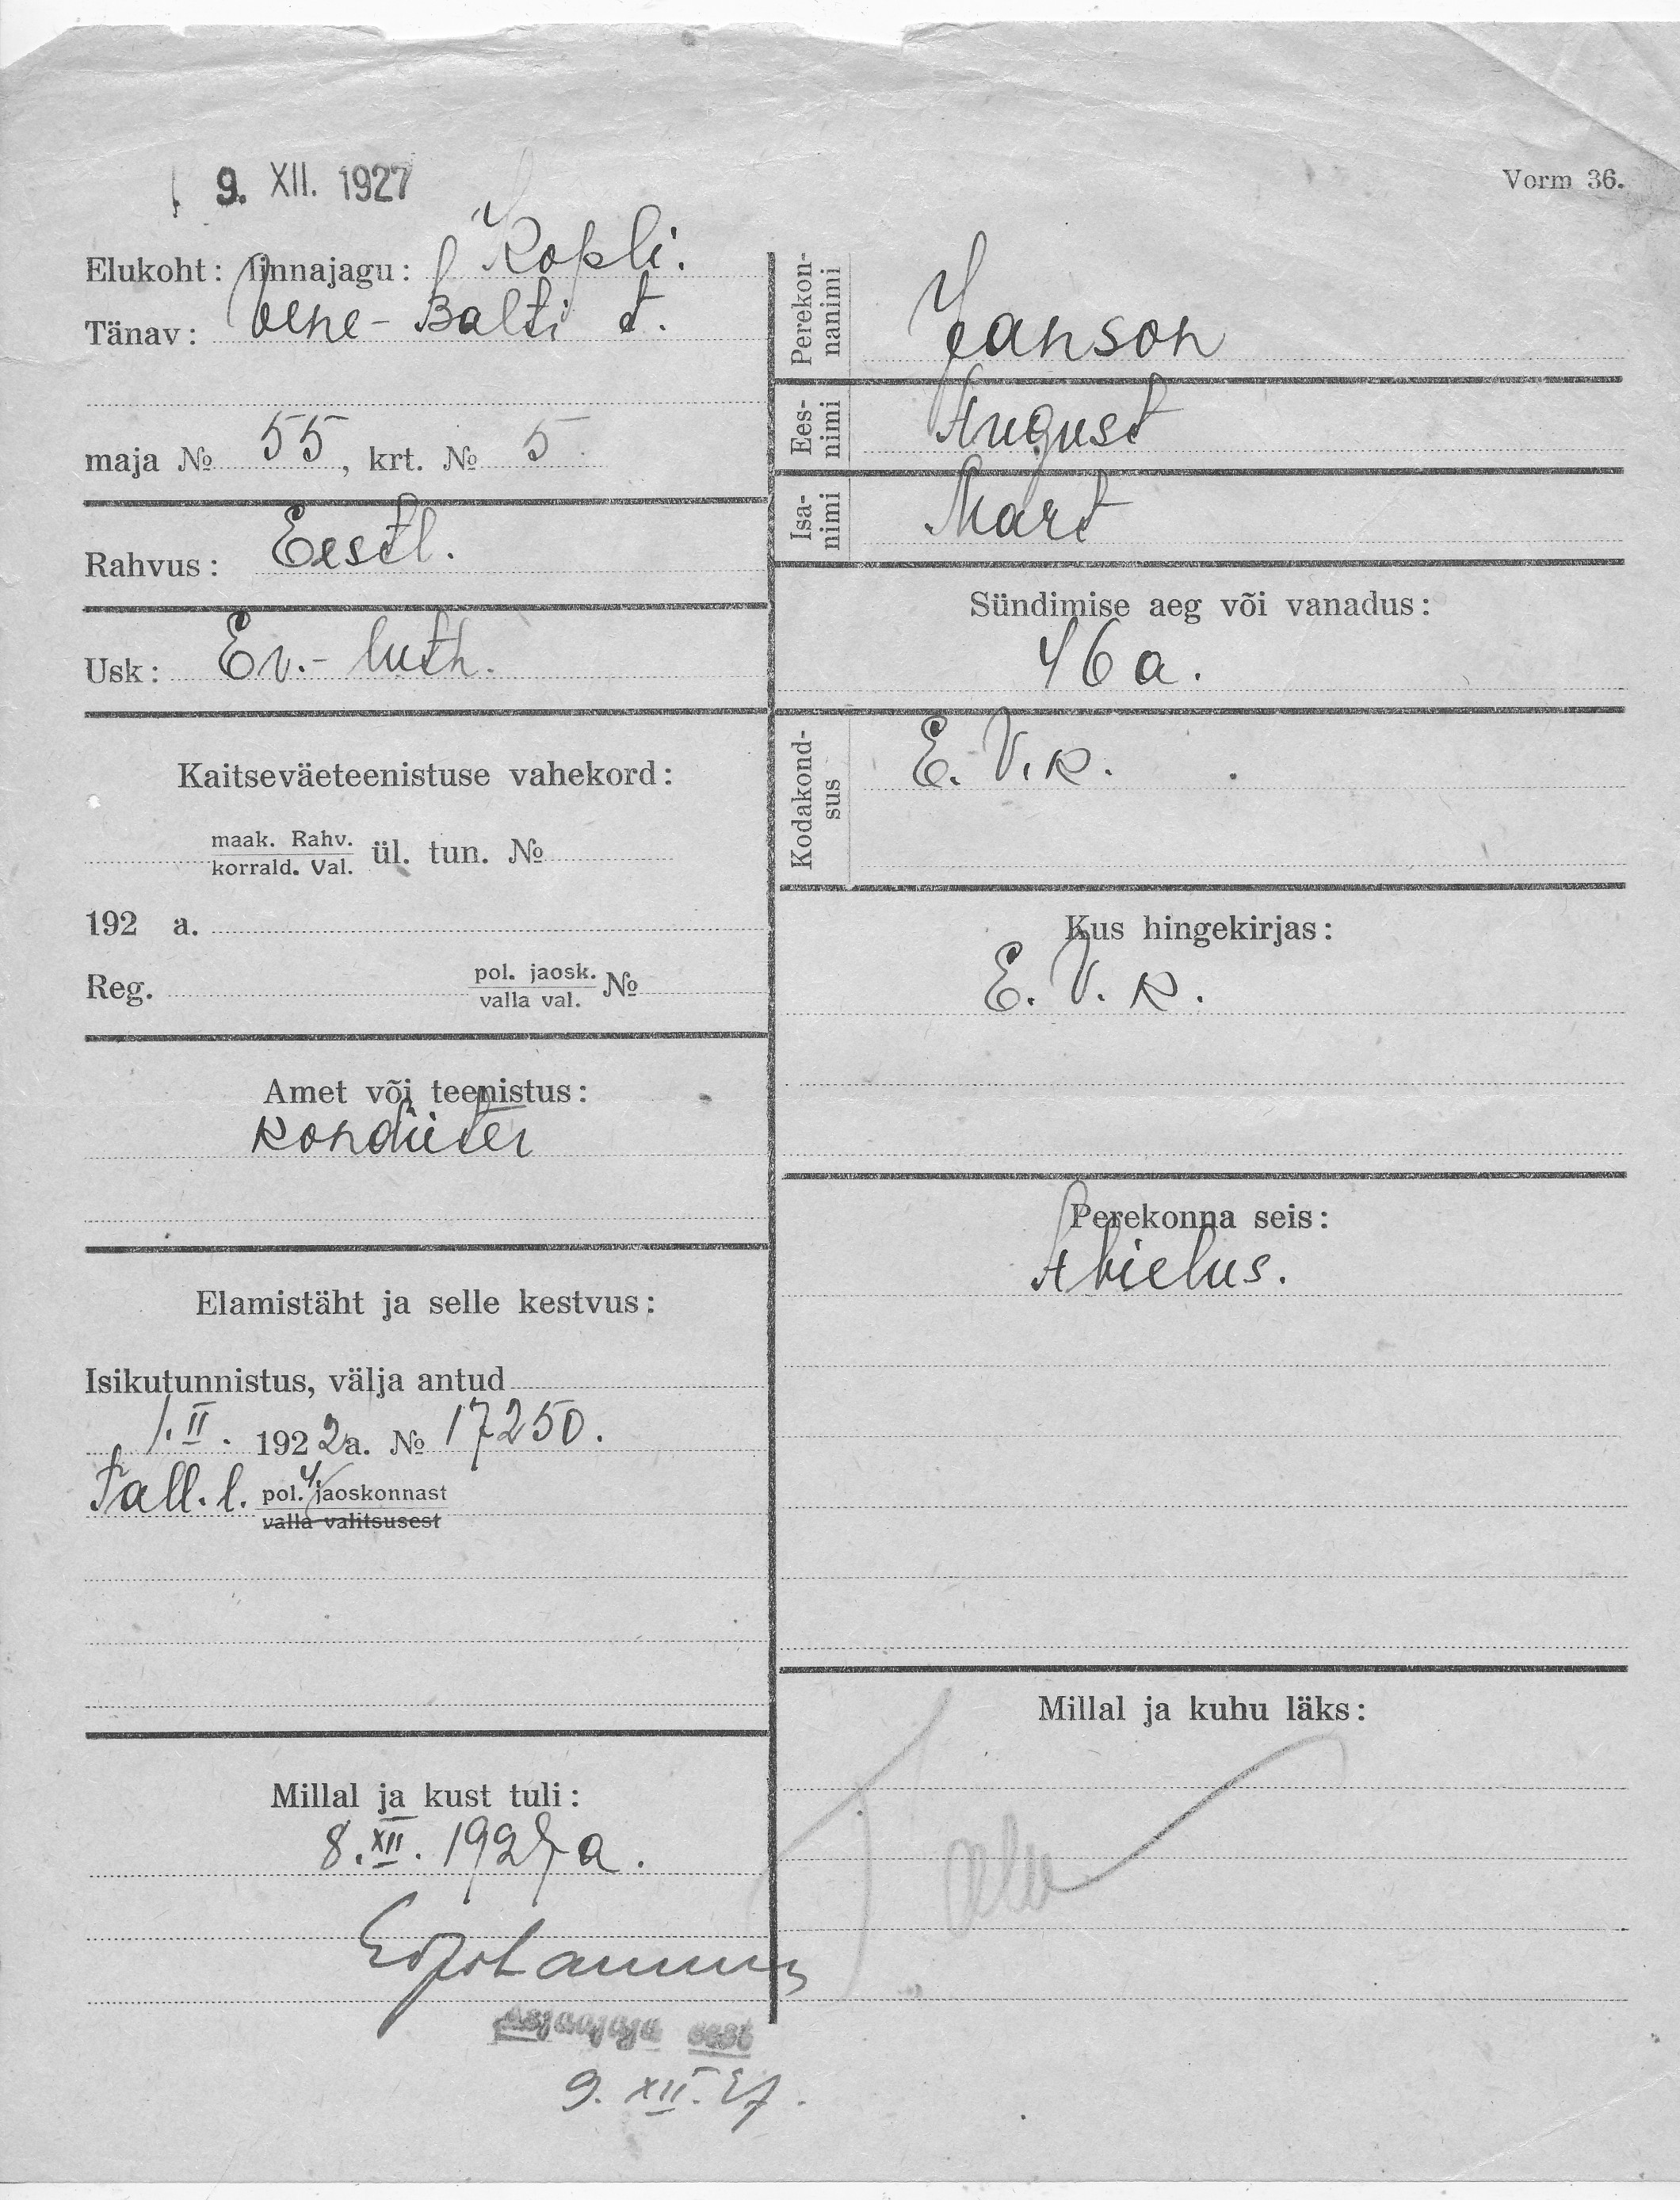 9. XII. 1927
Vorm 36.
Elukoht: linnajagu: Kopli.
Tänav: Vene-Balti t.
maja № 55, krt. № 5
Rahvus: Eestl.
Usk: Ev.-luth.
Kaitseväeteenistuse vahekord:
maak. Rahv.
korrald. Val. ül. tun. №
192 a.
Reg. pol. jaosk. №
valla val.
Amet või teenistus:
Konduiter
Elamistäht ja selle kestvus:
Isikutunnistus, välja antud
1.II. 1922a. № 17250.
Tall. l. pol. 4. jaoskonnast
valla valitsusest
Millal ja kust tuli:
8.XII. 1927 a.
Asjaajaja eest
9. XII. 27.
Perekon-
nanimi
Janson
Ees-
nimi
August
Isa-
nimi
Mart
Sündimise aeg või vanadus:
46 a.
Kodakond-
sus
E. V. K.
Kus hingekirjas:
E. V. K.
Perekonna seis:
Abielus.
Millal ja kuhu läks: